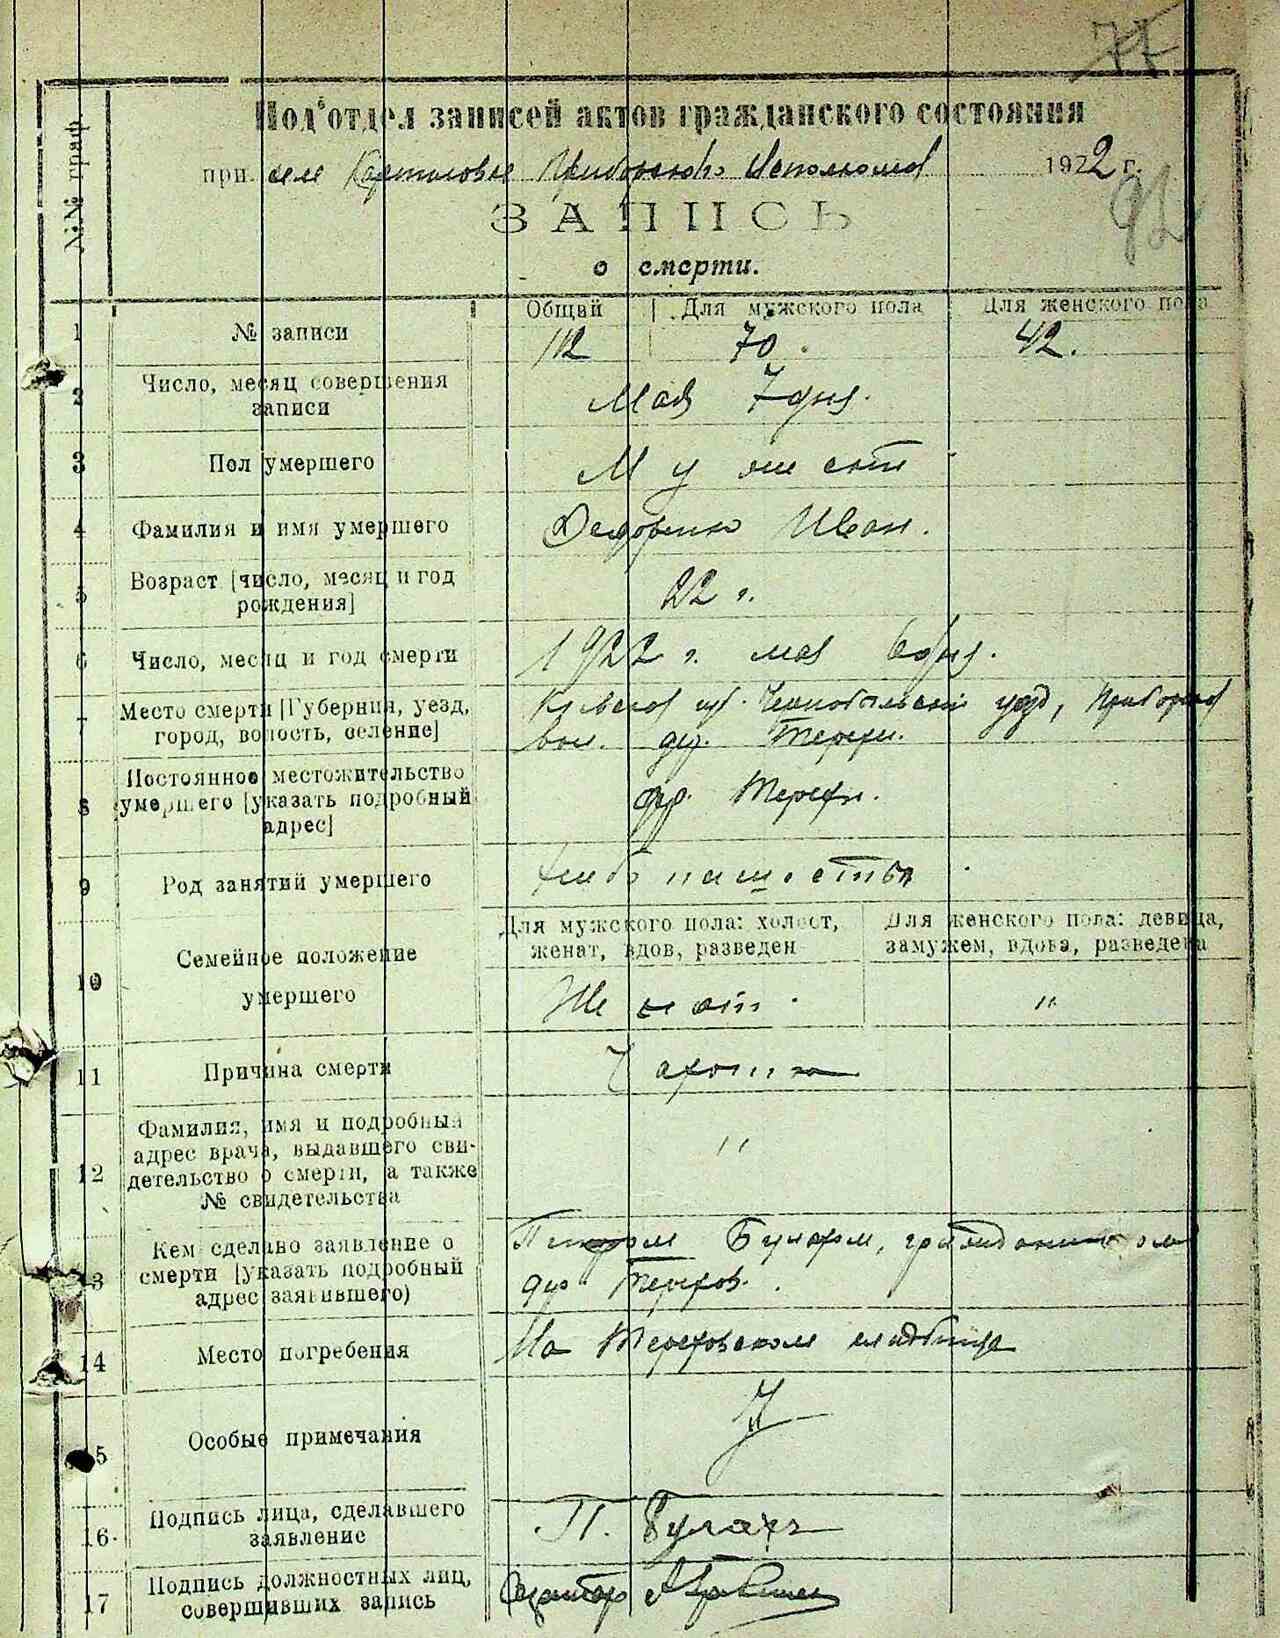 77
Под'отдел записей актов гражданского состояния
при селе Карпиловке Исполкомов 1922 г.
92
№№ граф
ЗАПИСЬ
о смерти.
Общий Для мужского пола Для женского пола
1 № записи 112 70 42.
2 Число, месяц совершения
записи Мая 7 дня.
3 Пол умершего Мужской
4 Фамилия и имя умершего Иван.
5 Возраст [число, месяц и год
рождения] 22 г.
6 Число, месяц и год смерти 1922 г. мая 6 дня.
7 Место смерти [Губерния, уезд, Киевской губ. Чернобыльский уезд,
город, волость, селение] вол. дер. Терехи.
8 Постоянное местожительство
умершего [указать подробный дер. Терехи.
адрес]
9 Род занятий умершего хлебопашество
Для мужского пола: холост, Для женского пола: девица,
женат, вдов, разведен замужем, вдова, разведена
10 Семейное положение
умершего Женат. "
11 Причина смерти Чахотка
12 Фамилия, имя и подробный
адрес врача, выдавшего сви-
детельство о смерти, а также "
№ свидетельства
13 Кем сделано заявление о Петром Булахом, гражданином
смерти [указать подробный дер Терехов.
адрес заявившего)
14 Место погребения На Тереховском кладбище
15 Особые примечания
16. Подпись лица, сделавшего
заявление П. Булахъ
17 Подпись должностных лиц,
совершивших запись